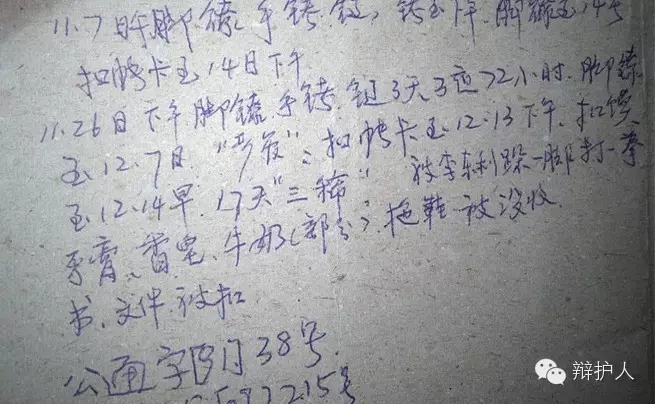 11.7日午脚镣、手铐、链,铐至下午.脚镣至14号
扣帐卡至14日下午
11.26日下午脚镣、手铐、链3天3夜72小时.脚镣
至12.7日."罚"扣帐卡至12.13下午.扣馍
至12.14早.17天"三稀"被李利跺一脚打一拳
牙膏、香皂、牛奶(部分)、拖鞋被没收
书、文件被扣
公通字[]38号
215号
辩护人